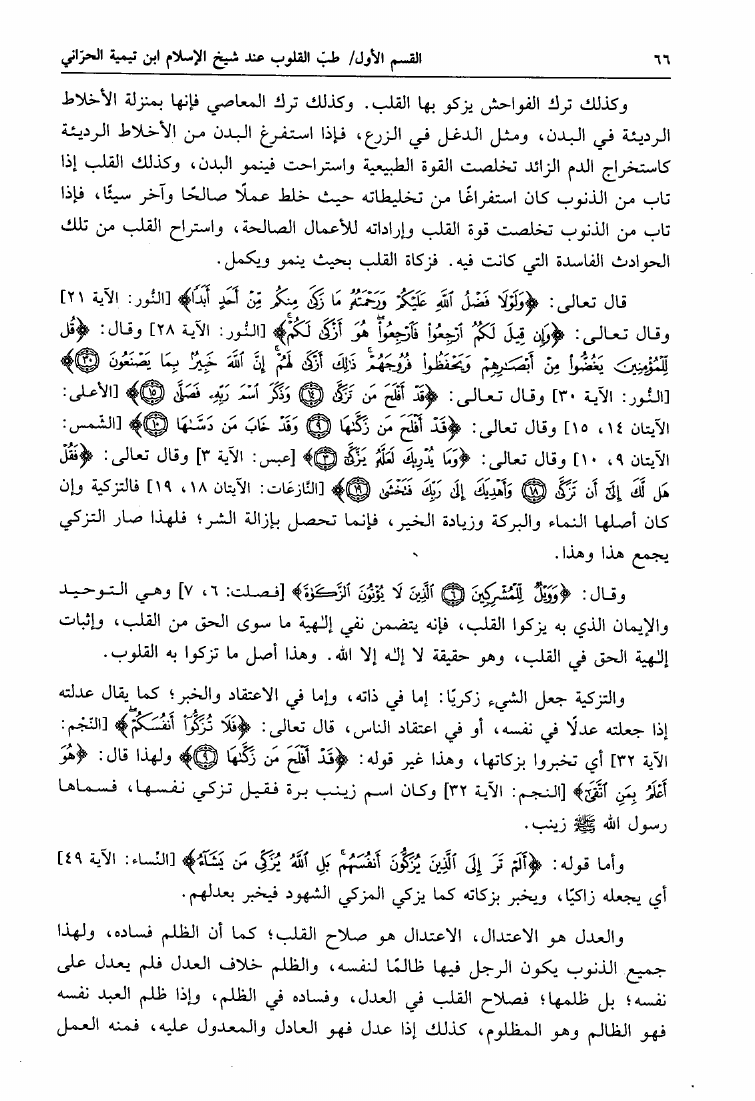 ٦٦ القسم الأول/ طبّ القلوب عند شيخ الإسلام ابن تيمية الحرّاني
وكذلك ترك الفواحش يزكو بها القلب. وكذلك ترك المعاصي فإنها بمنزلة الأخلاط
الرديئة في البدن، ومثل الدغل في الزرع، فإذا استفرغ البدن من الأخلاط الرديئة
كاستخراج الدم الزائد تخلصت القوة الطبيعية واستراحت فينمو البدن، وكذلك القلب إذا
تاب من الذنوب كان استفراغًا من تخليطاته حيث خلط عملًا صالحًا وآخر سيئًا، فإذا
تاب من الذنوب تخلصت قوة القلب وإراداته للأعمال الصالحة، واستراح القلب من تلك
الحوادث الفاسدة التي كانت فيه. فزكاة القلب بحيث ينمو ويكمل.
قال تعالى: ﴿وَلَوْلَا فَضْلُ ٱللَّهِ عَلَيْكُمْ وَرَحْمَتُهُۥ مَا زَكَىٰ مِنكُم مِّنْ أَحَدٍ أَبَدًا﴾ [النُّور: الآية ٢١]
وقال تعالى: ﴿وَإِن قِيلَ لَكُمُ ٱرْجِعُوا۟ فَٱرْجِعُوا۟ۖ هُوَ أَزْكَىٰ لَكُمْۚ﴾ [النُّور: الآية ٢٨] وقال: ﴿قُل
لِّلْمُؤْمِنِينَ يَغُضُّوا۟ مِنْ أَبْصَـٰرِهِمْ وَيَحْفَظُوا۟ فُرُوجَهُمْۚ ذَٰلِكَ أَزْكَىٰ لَهُمْۗ إِنَّ ٱللَّهَ خَبِيرٌۢ بِمَا يَصْنَعُونَ ﴿٣٠﴾﴾
[النُّور: الآية ٣٠] وقال تعالى: ﴿قَدْ أَفْلَحَ مَن تَزَكَّىٰ ﴿١٤﴾ وَذَكَرَ ٱسْمَ رَبِّهِۦ فَصَلَّىٰ ﴿١٥﴾﴾ [الأعلى:
الآيتان ١٤، ١٥] وقال تعالى: ﴿قَدْ أَفْلَحَ مَن زَكَّىٰهَا ﴿٩﴾ وَقَدْ خَابَ مَن دَسَّىٰهَا ﴿١٠﴾﴾ [الشّمس:
الآيتان ٩، ١٠] وقال تعالى: ﴿وَمَا يُدْرِيكَ لَعَلَّهُۥ يَزَّكَّىٰٓ ﴿٣﴾﴾ [عبس: الآية ٣] وقال تعالى: ﴿فَقُلْ
هَل لَّكَ إِلَىٰٓ أَن تَزَكَّىٰ ﴿١٨﴾ وَأَهْدِيَكَ إِلَىٰ رَبِّكَ فَتَخْشَىٰ ﴿١٩﴾﴾ [النَّازعَات: الآيتان ١٨، ١٩] فالتزكية وإن
كان أصلها النماء والبركة وزيادة الخير، فإنما تحصل بإزالة الشر؛ فلهذا صار التزكي
يجمع هذا وهذا.
وقال: ﴿وَوَيْلٌ لِّلْمُشْرِكِينَ ﴿٦﴾ ٱلَّذِينَ لَا يُؤْتُونَ ٱلزَّكَوٰةَ﴾ [فصلت: ٦، ٧] وهي التوحيد
والإيمان الذي به يزكوا القلب، فإنه يتضمن نفي إلـٰهية ما سوى الحق من القلب، وإثبات
إلـٰهية الحق في القلب، وهو حقيقة لا إلـٰه إلا الله. وهذا أصل ما تزكوا به القلوب.
والتزكية جعل الشيء زكريًا: إما في ذاته، وإما في الاعتقاد والخبر؛ كما يقال عدلته
إذا جعلته عدلًا في نفسه، أو في اعتقاد الناس، قال تعالى: ﴿فَلَا تُزَكُّوٓا۟ أَنفُسَكُمْۖ﴾ [النّجْم:
الآية ٣٢] أي تخبروا بزكاتها، وهذا غير قوله: ﴿قَدْ أَفْلَحَ مَن زَكَّىٰهَا ﴿٩﴾﴾ ولهذا قال: ﴿هُوَ
أَعْلَمُ بِمَنِ ٱتَّقَىٰٓ﴾ [النجم: الآية ٣٢] وكان اسم زينب برة فقيل تزكي نفسها، فسماها
رسول الله ﷺ زينب.
وأما قوله: ﴿أَلَمْ تَرَ إِلَى ٱلَّذِينَ يُزَكُّونَ أَنفُسَهُمۚ بَلِ ٱللَّهُ يُزَكِّى مَن يَشَآءُ﴾ [النّساء: الآية ٤٩]
أي يجعله زاكيًا، ويخبر بزكاته كما يزكي المزكي الشهود فيخبر بعدلهم.
والعدل هو الاعتدال، الاعتدال هو صلاح القلب؛ كما أن الظلم فساده، ولهذا
جميع الذنوب يكون الرجل فيها ظالمًا لنفسه، والظلم خلاف العدل فلم يعدل على
نفسه؛ بل ظلمها؛ فصلاح القلب في العدل، وفساده في الظلم، وإذا ظلم العبد نفسه
فهو الظالم وهو المظلوم، كذلك إذا عدل فهو العادل والمعدول عليه، فمنه العمل